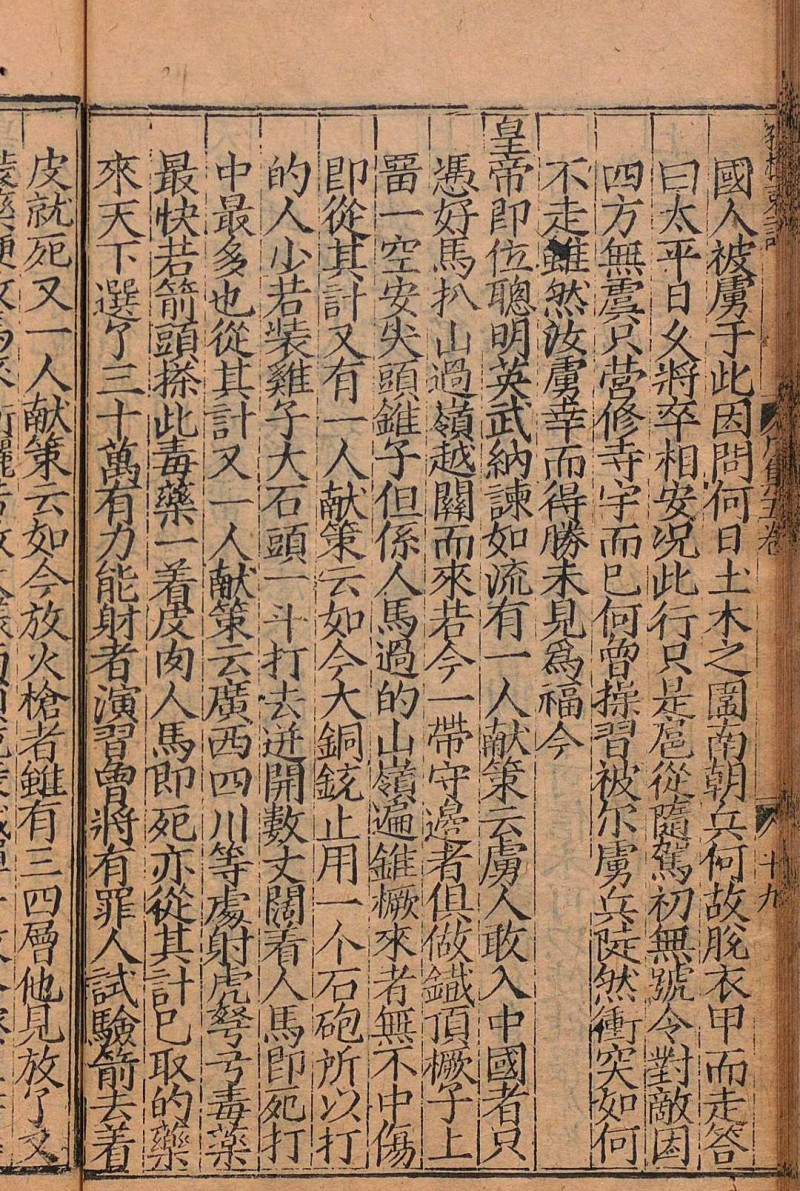 國人被虜于此因問何日土木之圍南朝兵何故脫衣甲而走答
曰太平日久將卒相安况此行只是扈從隨駕初無號令對敵因
四方無虞只营修寺宇而已何曾操習被尔虜兵陡然衝突如何
不走雖然汝虜幸而得勝未見爲福今
皇帝即位聰明英武納諫如流有一人献策云虜人敢入中國者只
憑好馬扒山過嶺越關而來若今一帶守邊者俱做鐵頂橛子上
畱一空安尖頭錐子但係人馬過的山嶺遍錐橛來者無不中傷
即從其計又有一人献策云如今大銅銃止用一个石砲所以打
的人少若裝雞子大石頭一斗打去迸開數丈闊着人馬即死打
中最多也從其計又一人献策云廣西四川等處射虎弩弓毒藥
最快若箭頭搽此毒藥一着皮肉人馬即死亦從其計已取的藥
來天下選了三十萬有力能射者演習曾將有罪人試驗箭去着
皮就死又一人献策云如今放火槍者雖有三四層他見放了又
五卷
十九